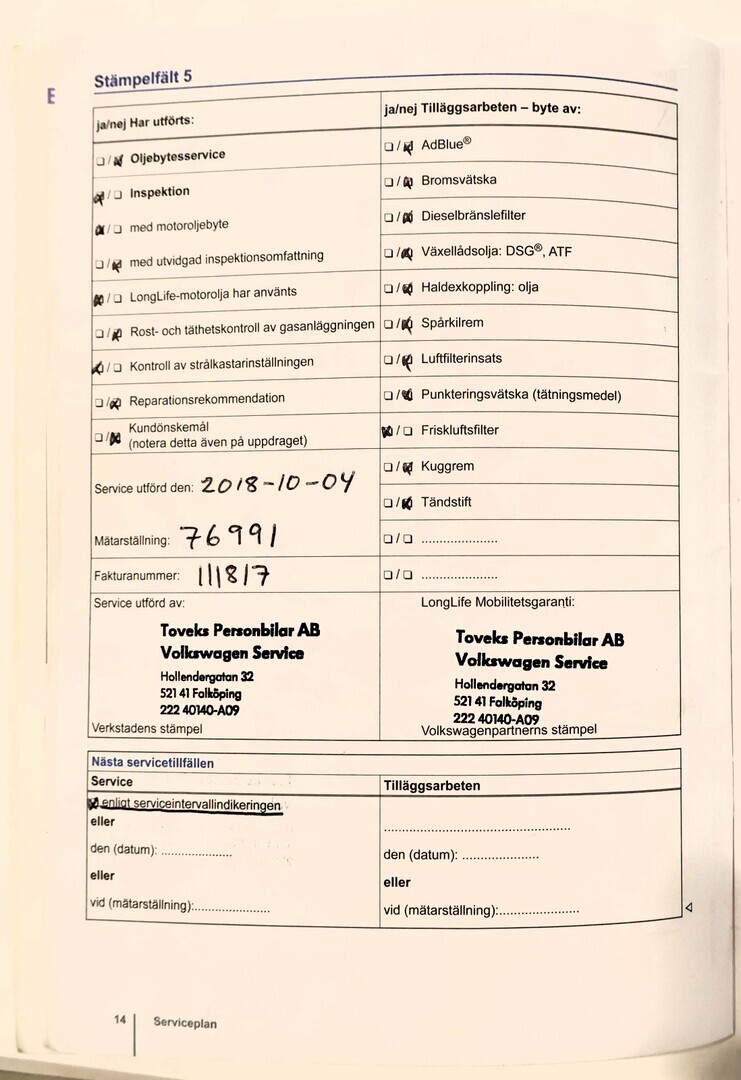 E
Stämpelfält 5
ja/nej Har utförts:
☐/☒ Oljebytesservice
☒/☐ Inspektion
☒/☐ med motoroljebyte
☐/☒ med utvidgad inspektionsomfattning
☒/☐ LongLife-motorolja har använts
☐/☒ Rost- och täthetskontroll av gasanläggningen
☒/☐ Kontroll av strålkastarinställningen
☐/☒ Reparationsrekommendation
☐/☒ Kundönskemål
(notera detta även på uppdraget)
Service utförd den: 2018-10-04
Mätarställning: 76991
Fakturanummer: 111817
Service utförd av:
Toveks Personbilar AB
Volkswagen Service
Hollendergatan 32
521 41 Falköping
222 40140-A09
Verkstadens stämpel
ja/nej Tilläggsarbeten – byte av:
☐/☒ AdBlue®
☐/☒ Bromsvätska
☐/☒ Dieselbränslefilter
☐/☒ Växellådsolja: DSG®, ATF
☐/☒ Haldexkoppling: olja
☐/☒ Spårkilrem
☐/☒ Luftfilterinsats
☐/☒ Punkteringsvätska (tätningsmedel)
☒/☐ Friskluftsfilter
☐/☒ Kuggrem
☐/☒ Tändstift
☐/☐ ....................
☐/☐ ....................
LongLife Mobilitetsgaranti:
Toveks Personbilar AB
Volkswagen Service
Hollendergatan 32
521 41 Falköping
222 40140-A09
Volkswagenpartnerns stämpel
Nästa servicetillfällen
Service
☒ enligt serviceintervallindikeringen
eller
den (datum): ....................
eller
vid (mätarställning):....................
Tilläggsarbeten
..................................................
den (datum): ....................
eller
vid (mätarställning):....................
14
Serviceplan